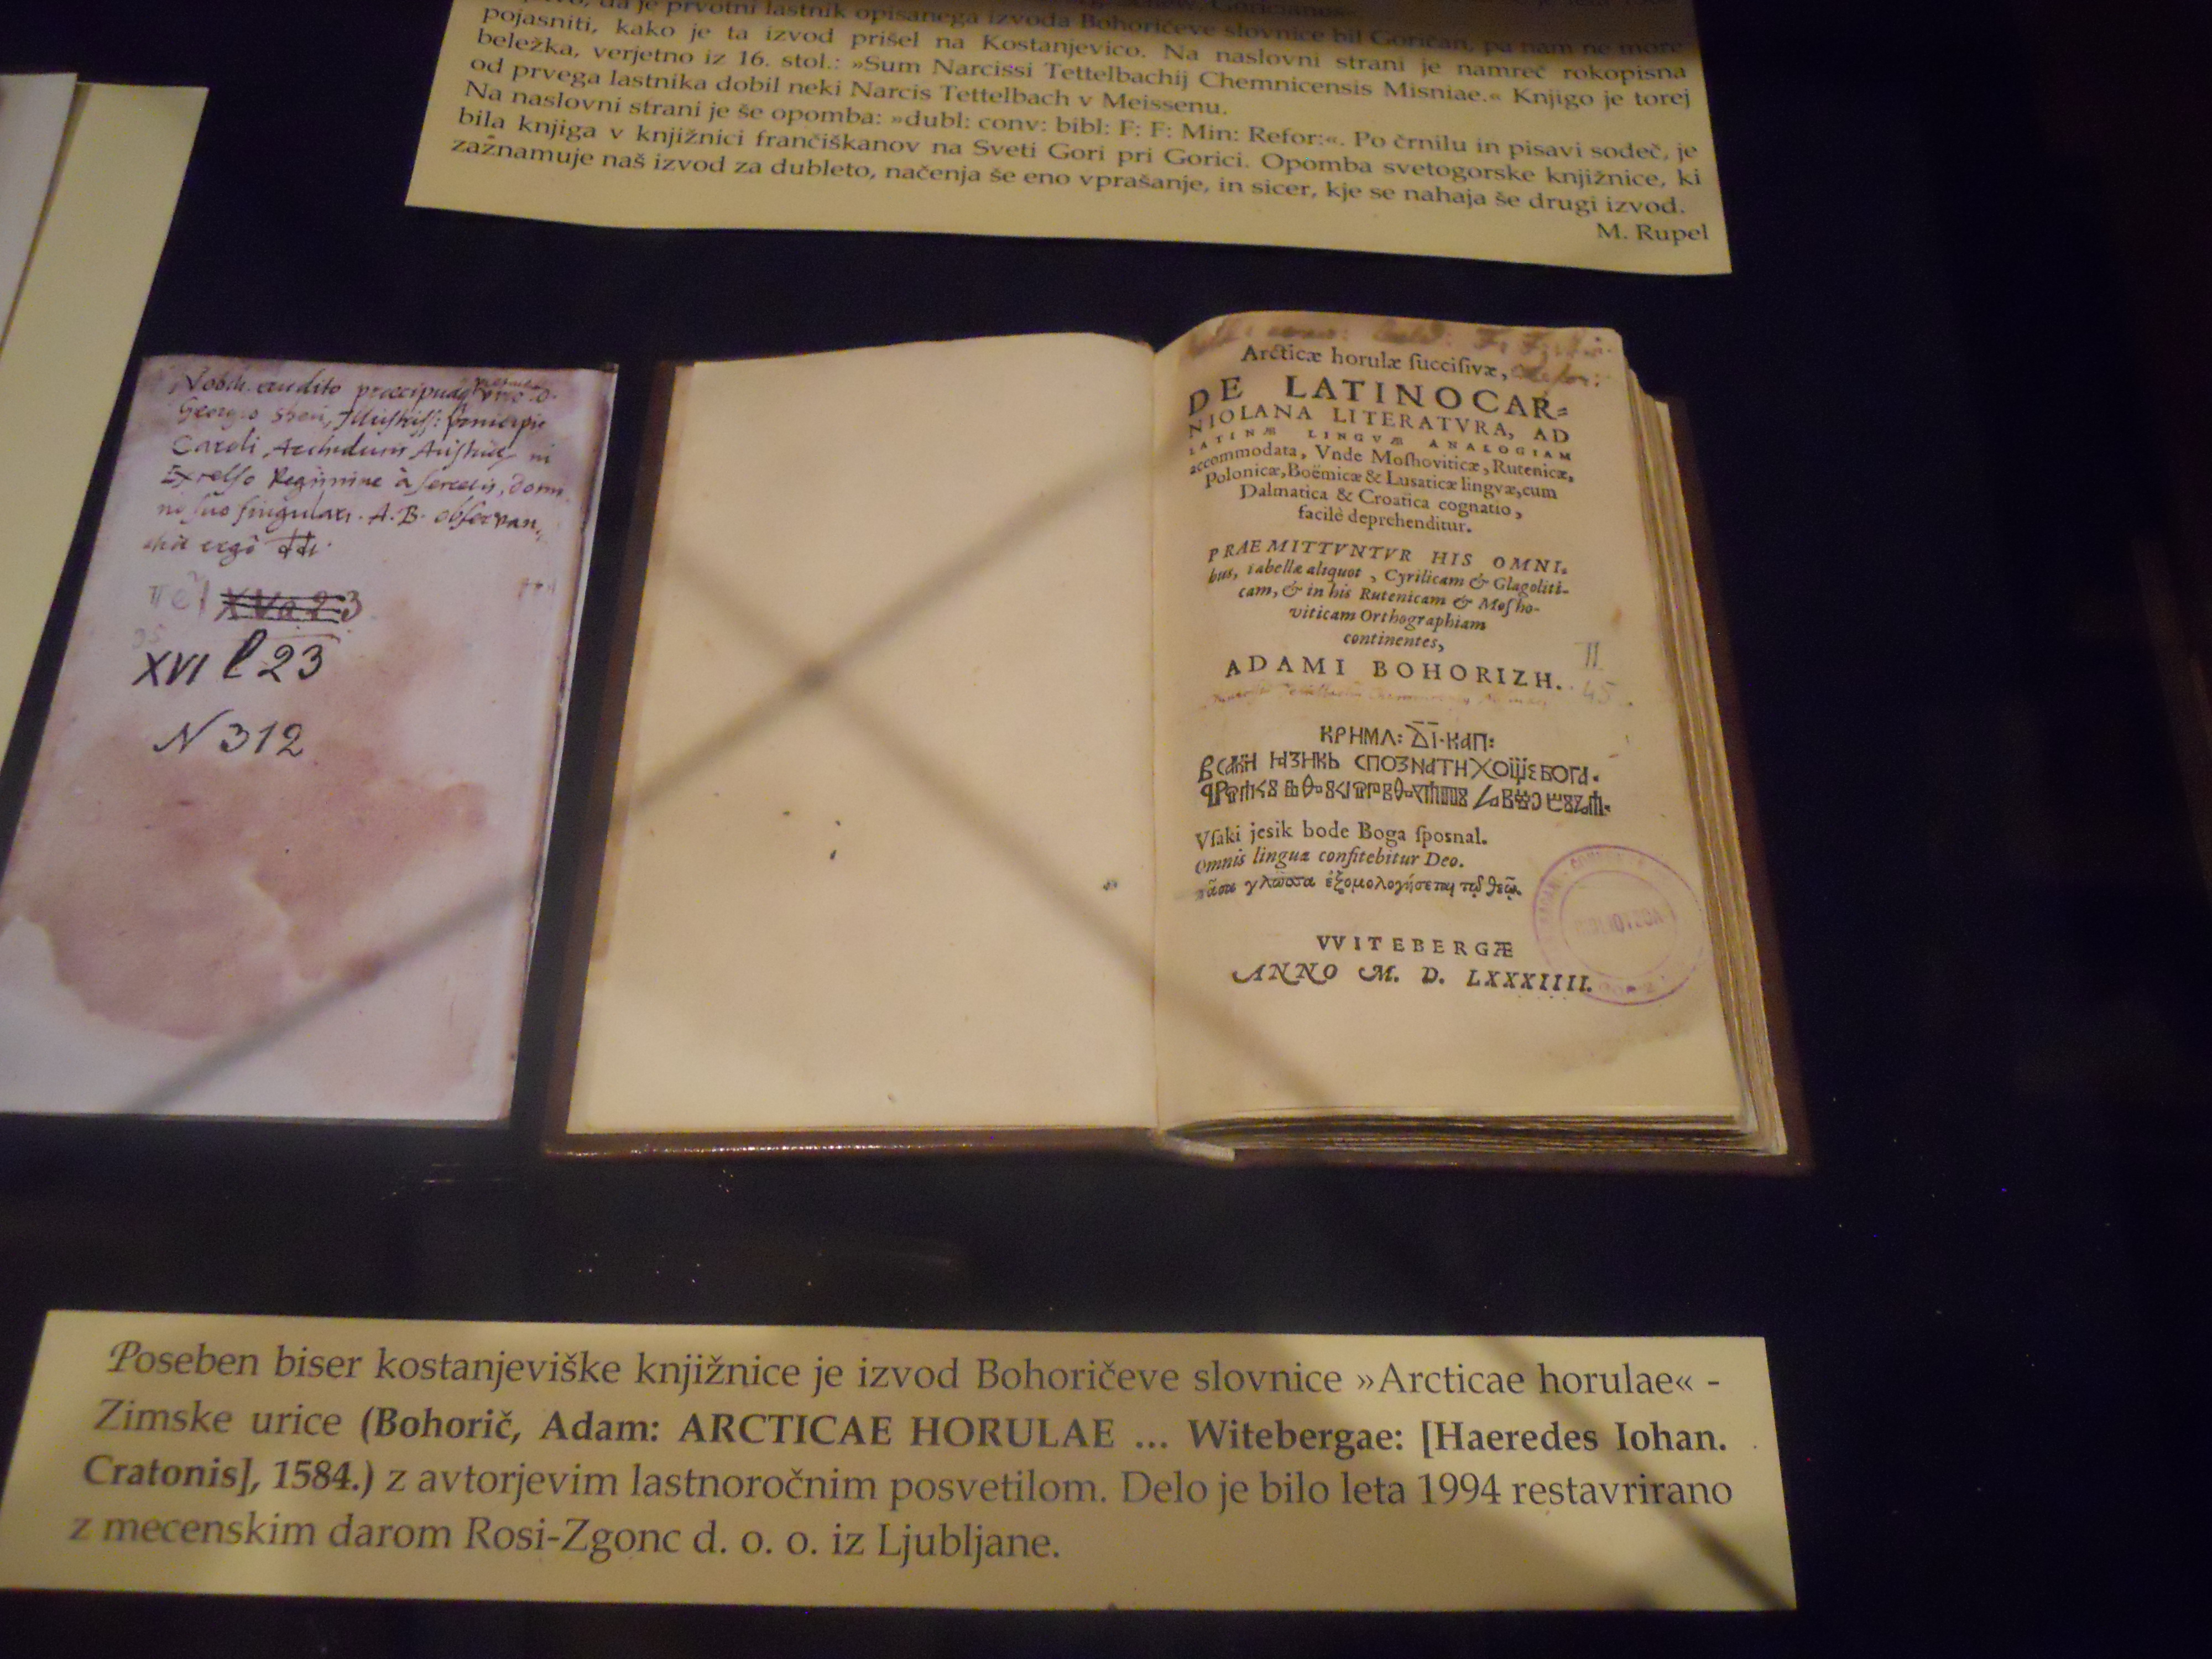 da je prvotni lastnik opisanega izvoda Bohoričeve slovnice bil Goričan, pa nam ne more
pojasniti, kako je ta izvod prišel na Kostanjevico. Na naslovni strani je namreč rokopisna
beležka, verjetno iz 16. stol.: »Sum Narcissi Tettelbachij Chemnicensis Misniae.« Knjigo je torej
od prvega lastnika dobil neki Narcis Tettelbach v Meissenu.
Na naslovni strani je še opomba: »dubl: conv: bibl: F: F: Min: Refor:«. Po črnilu in pisavi sodeč, je
bila knjiga v knjižnici frančiškanov na Sveti Gori pri Gorici. Opomba svetogorske knjižnice, ki
zaznamuje naš izvod za dubleto, načenja še eno vprašanje, in sicer, kje se nahaja še drugi izvod.
M. Rupel
erudito
Georgio
Caroli
Regimine à
no suo singulari. A. B. observan
ergò
XVI l 23
N 312
Arcticæ horulæ ſucciſivæ,
DE LATINOCAR=
NIOLANA LITERATVRA, AD
LATINÆ LINGVÆ ANALOGIAM
accommodata, Vnde Moſhoviticæ, Rutenicæ,
Polonicæ, Boëmicæ & Lusaticæ lingvæ, cum
Dalmatica & Croatica cognatio,
facilè deprehenditur.
PRAEMITTVNTVR HIS OMNI-
bus, tabellæ aliquot, Cyrilicam & Glagoliti-
cam, & in his Rutenicam & Moſho-
viticam Orthographiam
continentes,
ADAMI BOHORIZH.
II
45
Vſaki jesik bode Boga ſposnal.
Omnis lingua confitebitur Deo.
γλῶσσα ἐξομολογήσεται τῷ θεῷ.
VVITEBERGÆ
ANNO M. D. LXXXIIII.
Poseben biser kostanjeviške knjižnice je izvod Bohoričeve slovnice »Arcticae horulae« -
Zimske urice (Bohorič, Adam: ARCTICAE HORULAE ... Witebergae: [Haeredes Iohan.
Cratonis], 1584.) z avtorjevim lastnoročnim posvetilom. Delo je bilo leta 1994 restavrirano
z mecenskim darom Rosi-Zgonc d. o. o. iz Ljubljane.